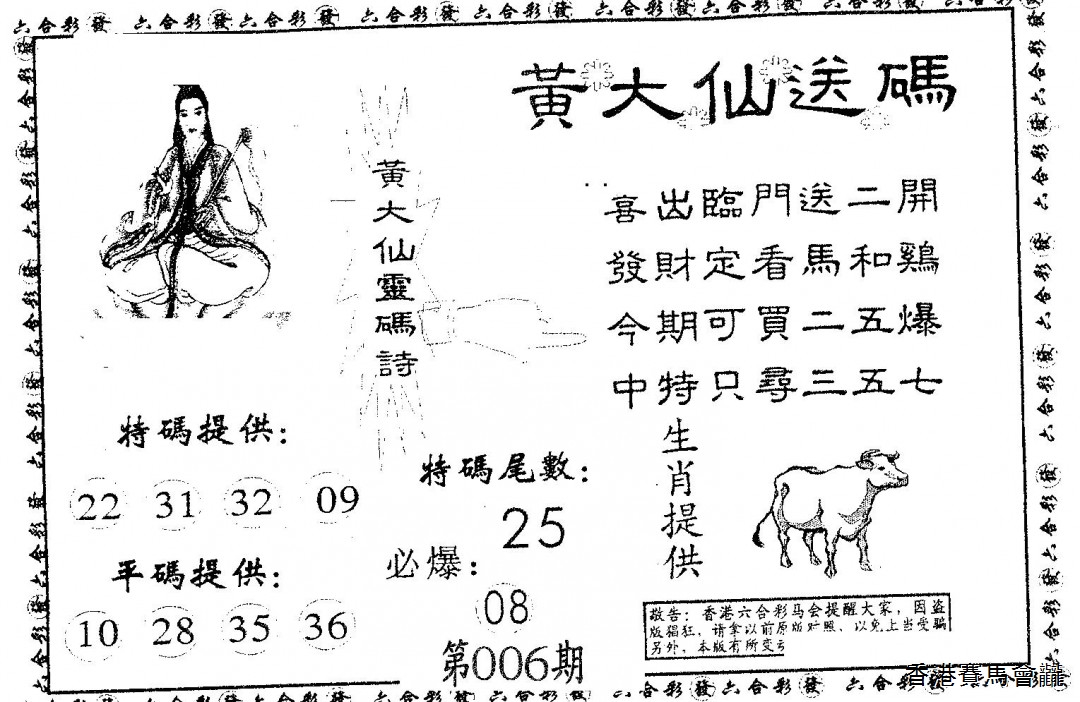 六合彩發 六合彩發 六合彩發 六合彩發 六合彩發 六合彩發 六合彩發 六合彩發
黃大仙送碼
黃大仙靈碼詩
喜出臨門送二開
發財定看馬和鷄
今期可買二五爆
中特只尋三五七
特碼提供：
22 31 32 09
平碼提供：
10 28 35 36
特碼尾數：
25
必爆：
08
第006期
生肖提供
敬告：香港六合彩马会提醒大家，因盗
版猖狂，请拿以前原版对照，以免上当受骗
另外，本版有所变
香港賽馬會